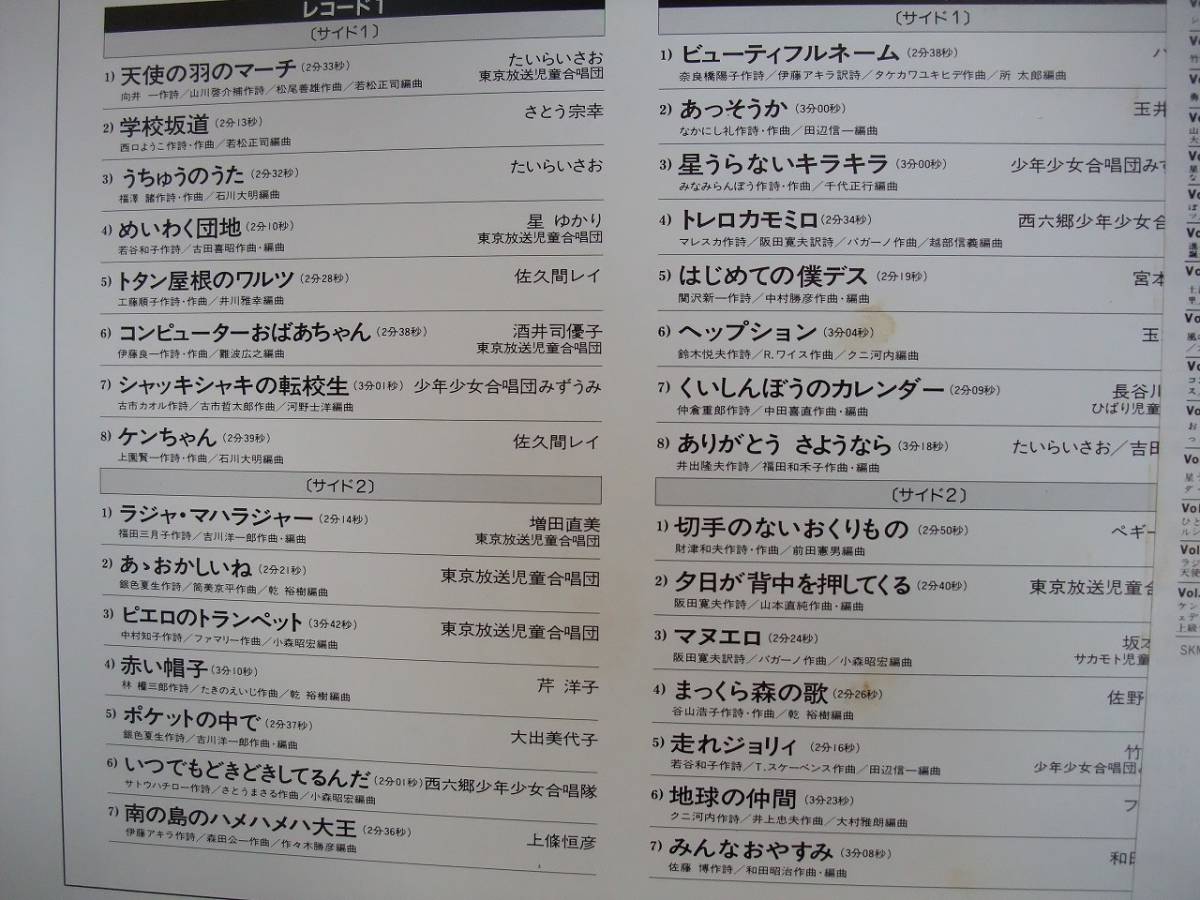 レコード1
〔サイド1〕
1) 天使の羽のマーチ(2分33秒) たいらいさお
東京放送児童合唱団
向井 一作詩／山川啓介補作詩／松尾善雄作曲／若松正司編曲
2) 学校坂道(2分13秒) さとう宗幸
西口ようこ作詩・作曲／若松正司編曲
3) うちゅうのうた(2分32秒) たいらいさお
福澤 諸作詩・作曲／石川大明編曲
4) めいわく団地(2分10秒) 星 ゆかり
東京放送児童合唱団
若谷和子作詩／古田喜昭作曲・編曲
5) トタン屋根のワルツ(2分28秒) 佐久間レイ
工藤順子作詩・作曲／井川雅幸編曲
6) コンピューターおばあちゃん(2分38秒) 酒井司優子
東京放送児童合唱団
伊藤良一作詩・作曲／難波広之編曲
7) シャッキシャキの転校生(3分01秒) 少年少女合唱団みずうみ
古市カオル作詩／古市哲太郎作曲／河野士洋編曲
8) ケンちゃん(2分39秒) 佐久間レイ
上園賢一作詩・作曲／石川大明編曲
〔サイド2〕
1) ラジャ・マハラジャー(2分14秒) 増田直美
東京放送児童合唱団
福田三月子作詩／吉川洋一郎作曲・編曲
2) あゝおかしいね(2分21秒) 東京放送児童合唱団
銀色夏生作詩／筒美京平作曲／乾 裕樹編曲
3) ピエロのトランペット(3分42秒) 東京放送児童合唱団
中村知子作詩／ファマリー作曲／小森昭宏編曲
4) 赤い帽子(3分10秒) 芹 洋子
林 権三郎作詩／たきのえいじ作曲／乾 裕樹編曲
5) ポケットの中で(2分37秒) 大出美代子
銀色夏生作詩／吉川洋一郎作曲・編曲
6) いつでもどきどきしてるんだ(2分01秒) 西六郷少年少女合唱隊
サトウハチロー作詩／さとうまさる作曲／小森昭宏編曲
7) 南の島のハメハメハ大王(2分36秒) 上條恒彦
伊藤アキラ作詩／森田公一作曲／佐々木勝彦編曲
〔サイド1〕
1) ビューティフルネーム(2分38秒)
奈良橋陽子作詩／伊藤アキラ訳詩／タケカワユキヒデ作曲／所 太郎編曲
2) あっそうか(3分00秒) 玉井
なかにし礼作詩・作曲／田辺信一編曲
3) 星うらないキラキラ(3分00秒) 少年少女合唱団みず
みなみらんぼう作詩・作曲／千代正行編曲
4) トレロカモミロ(2分34秒) 西六郷少年少女合
マレスカ作詩／阪田寛夫訳詩／パガーノ作曲／越部信義編曲
5) はじめての僕デス(2分19秒) 宮本
関沢新一作詩／中村勝彦作曲・編曲
6) ヘップション(3分04秒) 玉
鈴木悦夫作詩／R.ワイス作曲／クニ河内編曲
7) くいしんぼうのカレンダー(2分09秒) 長谷川
ひばり児童
仲倉重郎作詩／中田喜直作曲・編曲
8) ありがとう さようなら(3分18秒) たいらいさお／吉田
井出隆夫作詩／福田和禾子作曲・編曲
〔サイド2〕
1) 切手のないおくりもの(2分50秒) ペギー
財津和夫作詩・作曲／前田憲男編曲
2) 夕日が背中を押してくる(2分40秒) 東京放送児童合
阪田寛夫作詩／山本直純作曲・編曲
3) マヌエロ(2分24秒) 坂本
サカモト児童
阪田寛夫訳詩／パガーノ作曲／小森昭宏編曲
4) まっくら森の歌(2分26秒) 佐野
谷山浩子作詩・作曲／乾 裕樹編曲
5) 走れジョリィ(2分16秒) 竹
少年少女合唱団
若谷和子作詩／T.スケーベンス作曲／田辺信一編曲
6) 地球の仲間(3分23秒) フ
クニ河内作詩／井上忠夫作曲／大村雅朗編曲
7) みんなおやすみ(3分08秒) 和田
佐藤 博作詩／和田昭治作曲・編曲